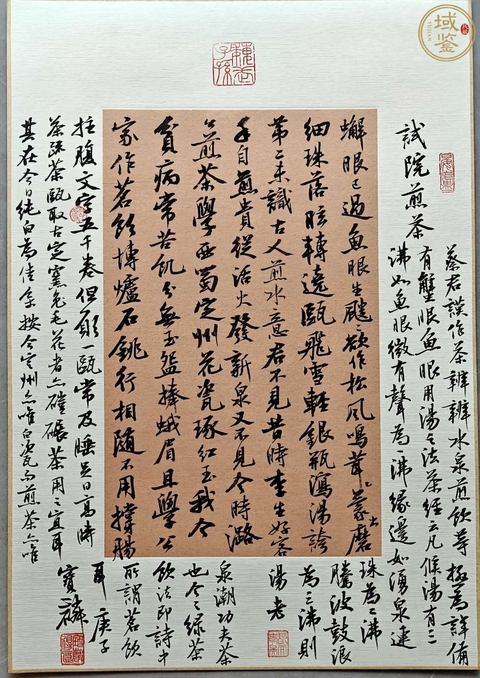 試院煎茶
蔡君謨作茶辨辨水泉煎飲等極為詳備
有蟹眼魚眼用湯之法茶經云凡候湯有三
沸如魚眼微有聲為一沸緣邊如湧泉連
珠為二沸
騰波鼓浪
為三沸則
湯老
蟹眼已過魚眼生颼颼欲作松風鳴茸蒙出磨
細珠落眩轉遶甌飛雪輕銀瓶瀉湯誇
第二未識古人煎水意君不見昔時李生好客
手自煎貴從活火發新泉又不見今時潞
公煎茶學西蜀定州花瓷琢紅玉我今
貧病常苦飢分無玉盌捧蛾眉且學公
家作茗飲博爐石銚行相隨不用撐腸
拄腹文字五千卷但願一甌常及睡足日高時
茶甌取古定窯兔毛花者亦碾茶用之宜耳
其在今日純白為佳余按今定州亦唯白瓷而煎茶亦唯
泉潮功夫茶
也今之綠茶
飲法即詩中
所謂茗飲
耳 庚子
寶麟
魏武子孫
域鑒